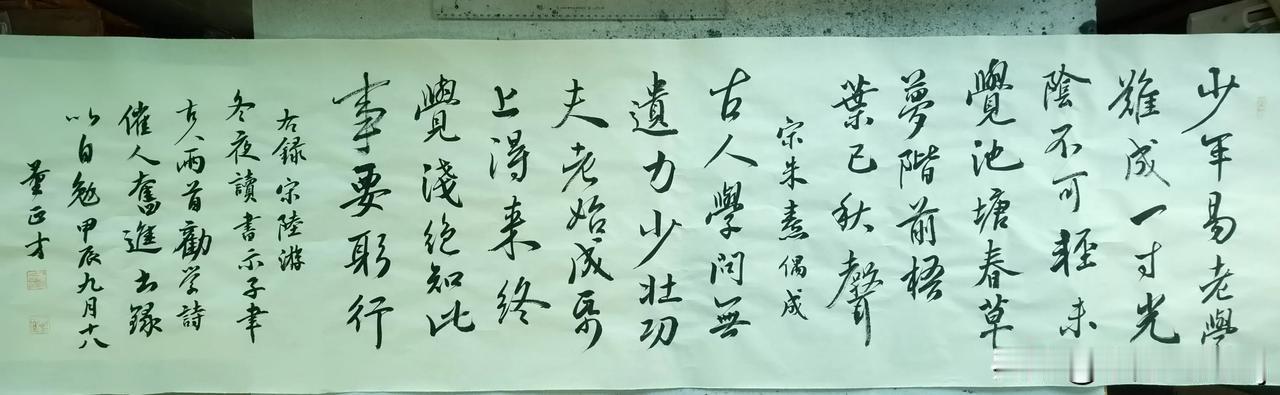 少年易老學
難成一寸光
陰不可輕未
覺池塘春草
夢階前梧
葉已秋聲
宋朱熹偶成
古人學問無
遺力少壯功
夫老始成紙
上得来終
覺淺絶知此
事要躬行
右録宋陸游
冬夜讀書示子聿
古人兩首勸学詩
催人奮進書録
以自勉甲辰九月十八
董正才